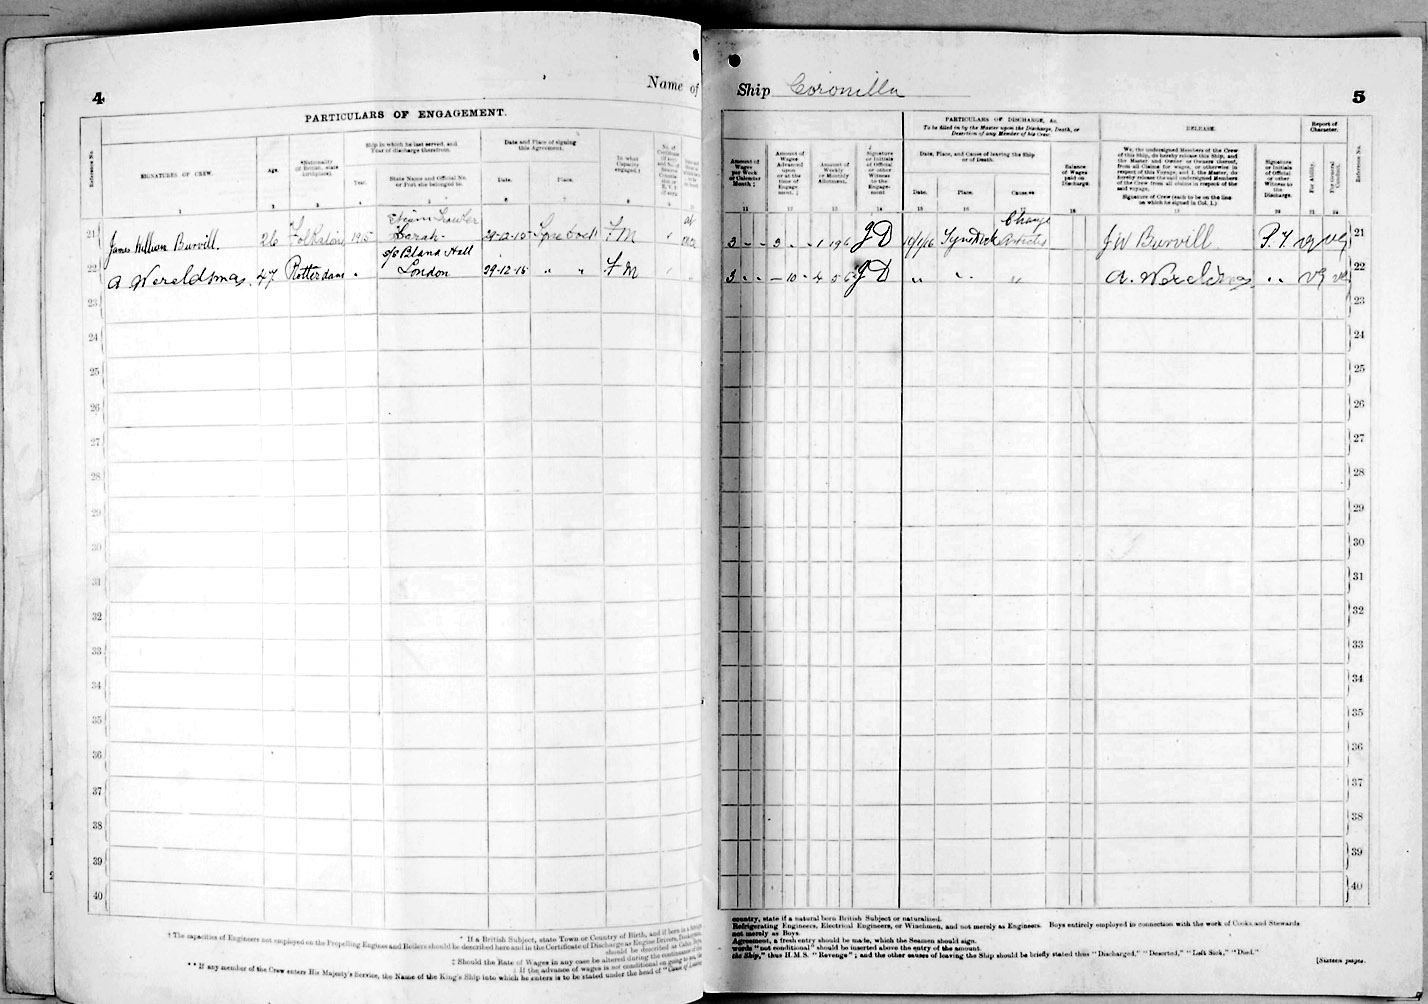 4
Name of
PARTICULARS OF ENGAGEMENT.
Reference No.
SIGNATURES OF CREW.
Age.
*Nationality
(If British, state
birthplace).
Ship in which he last served, and
Year of discharge therefrom.
Year.
State Name and Official No.
or Port she belonged to.
Date and Place of signing
this Agreement.
Date.
Place.
In what
Capacity
engaged.†
1 2 3 4 5 6 7 8 9
21 James William Burvill. 26 Folkstone 1915 Steam Trawler
Sarah 29-12-15 Tyne Dock F.M
22 A Wereldsma. 47 Rotterdam " S/S Bland Hall
London 29-12-15 " " F M
23
24
25
26
27
28
29
30
31
32
33
34
35
36
37
38
39
40
* If a British Subject, state Town or Country of Birth, and if born in a
† The capacities of Engineers not employed on the Propelling Engines and Boilers should be described here and in the Certificate of Discharge as Engine Drivers,
should be described as
‡ Should the Rate of Wages in any case be altered during the continuance of
: If the advance of wages is not conditional on going to sea,
** If any member of the Crew enters His Majesty's Service, the Name of the King's Ship into which he enters is to be stated under the head of "Cause of
Ship Coronilla
5
PARTICULARS OF DISCHARGE, &c.
To be filled in by the Master upon the Discharge, Death, or
Desertion of any Member of his Crew.
RELEASE.
Report of
Character.
Amount of
Wages
per Week
or Calendar
Month ‡
Amount of
Wages
Advanced
upon
or at the
time of
Engage-
ment. :
Amount of
Weekly
or Monthly
Allotment.
Signature
or Initials
of Official
or other
Witness
to the
Engage-
ment
Date, Place, and Cause of leaving the Ship
or of Death.
Date.
Place.
Cause.**
Balance
of Wages
paid on
Discharge.
We, the undersigned Members of the Crew
of this Ship, do hereby release this Ship, and
the Master and Owner or Owners thereof,
from all Claims for wages, or otherwise in
respect of this Voyage; and I, the Master, do
hereby release the said undersigned Members
of the Crew from all claims in respect of the
said voyage.
Signature of Crew (each to be on the line
on which he signed in Col. 1.)
Signature
or Initials
of Official
or other
Witness to
the
Discharge.
For Ability.
For General
Conduct.
Reference No.
11 12 13 14 15 16 17 18 19 20 21 22
3 - - 3 - - 1 19 6 JD 10/1/16 Tyne Dock Change
Articles J W Burvill. P.Y VG VG 21
3 - - - 10 - 4 5 6 JD " " " A. Wereldsma. " " VG VG 22
23
24
25
26
27
28
29
30
31
32
33
34
35
36
37
38
39
40
country, state if a natural born British Subject or naturalized.
Refrigerating Engineers, Electrical Engineers, or Winchmen, and not merely as Engineers. Boys entirely employed in connection with the work of Cooks and Stewards
not merely as Boys.
Agreement, a fresh entry should be made, which the Seamen should sign.
words "not conditional" should be inserted above the entry of the amount.
the Ship," thus H.M.S. "Revenge"; and the other causes of leaving the Ship should be briefly stated thus "Discharged," "Deserted," "Left Sick," "Died."
[Sixteen pages.